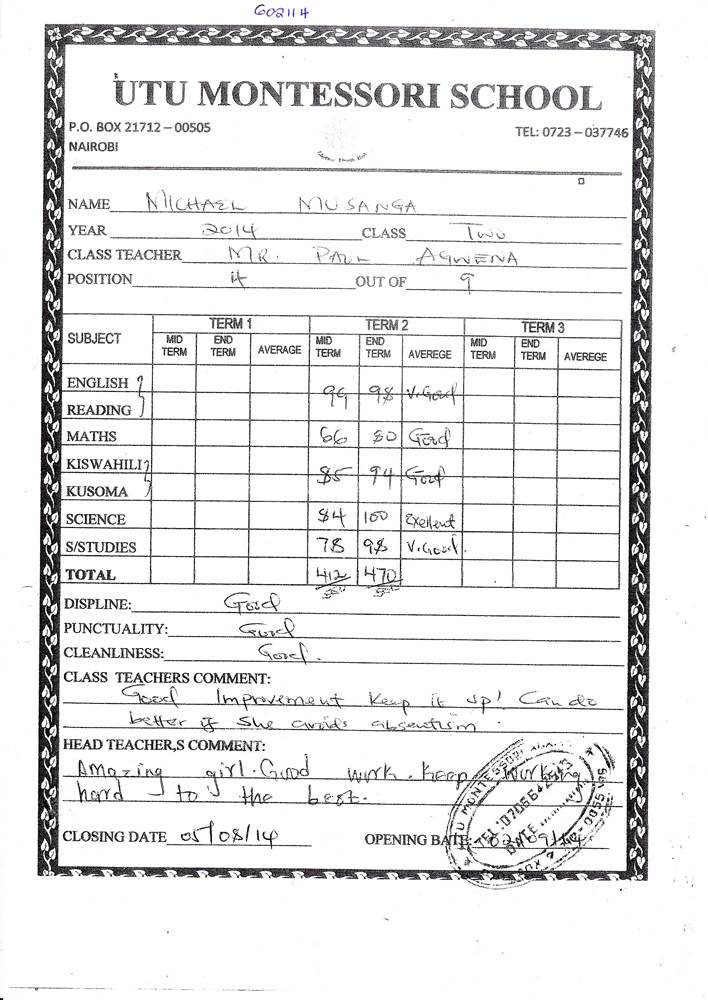 G02114
UTU MONTESSORI SCHOOL
P.O. BOX 21712 – 00505
TEL: 0723 – 037746
NAIROBI
NAME MICHAEL MUSANGA
YEAR 2014 CLASS Two
CLASS TEACHER MR. PAUL AGWENA
POSITION 4 OUT OF 9
SUBJECT TERM 1 TERM 2 TERM 3
MID TERM END TERM AVERAGE MID TERM END TERM AVEREGE MID TERM END TERM AVEREGE
ENGLISH
99 98 V.Good
READING
MATHS 66 80 Good
KISWAHILI
85 94 Good
KUSOMA
SCIENCE 84 100 Exellent
S/STUDIES 78 98 V.Good.
TOTAL 412 470
500 500
DISPLINE: Good
PUNCTUALITY: Good
CLEANLINESS: Good.
CLASS TEACHERS COMMENT:
Good Improvement Keep it up! Can do
better if she avoids absentism.
HEAD TEACHER,S COMMENT:
Amazing girl. Good work. Keep working
hard to the best.
CLOSING DATE 05/08/14 OPENING DATE:
UTU MONTESSORI
DATE